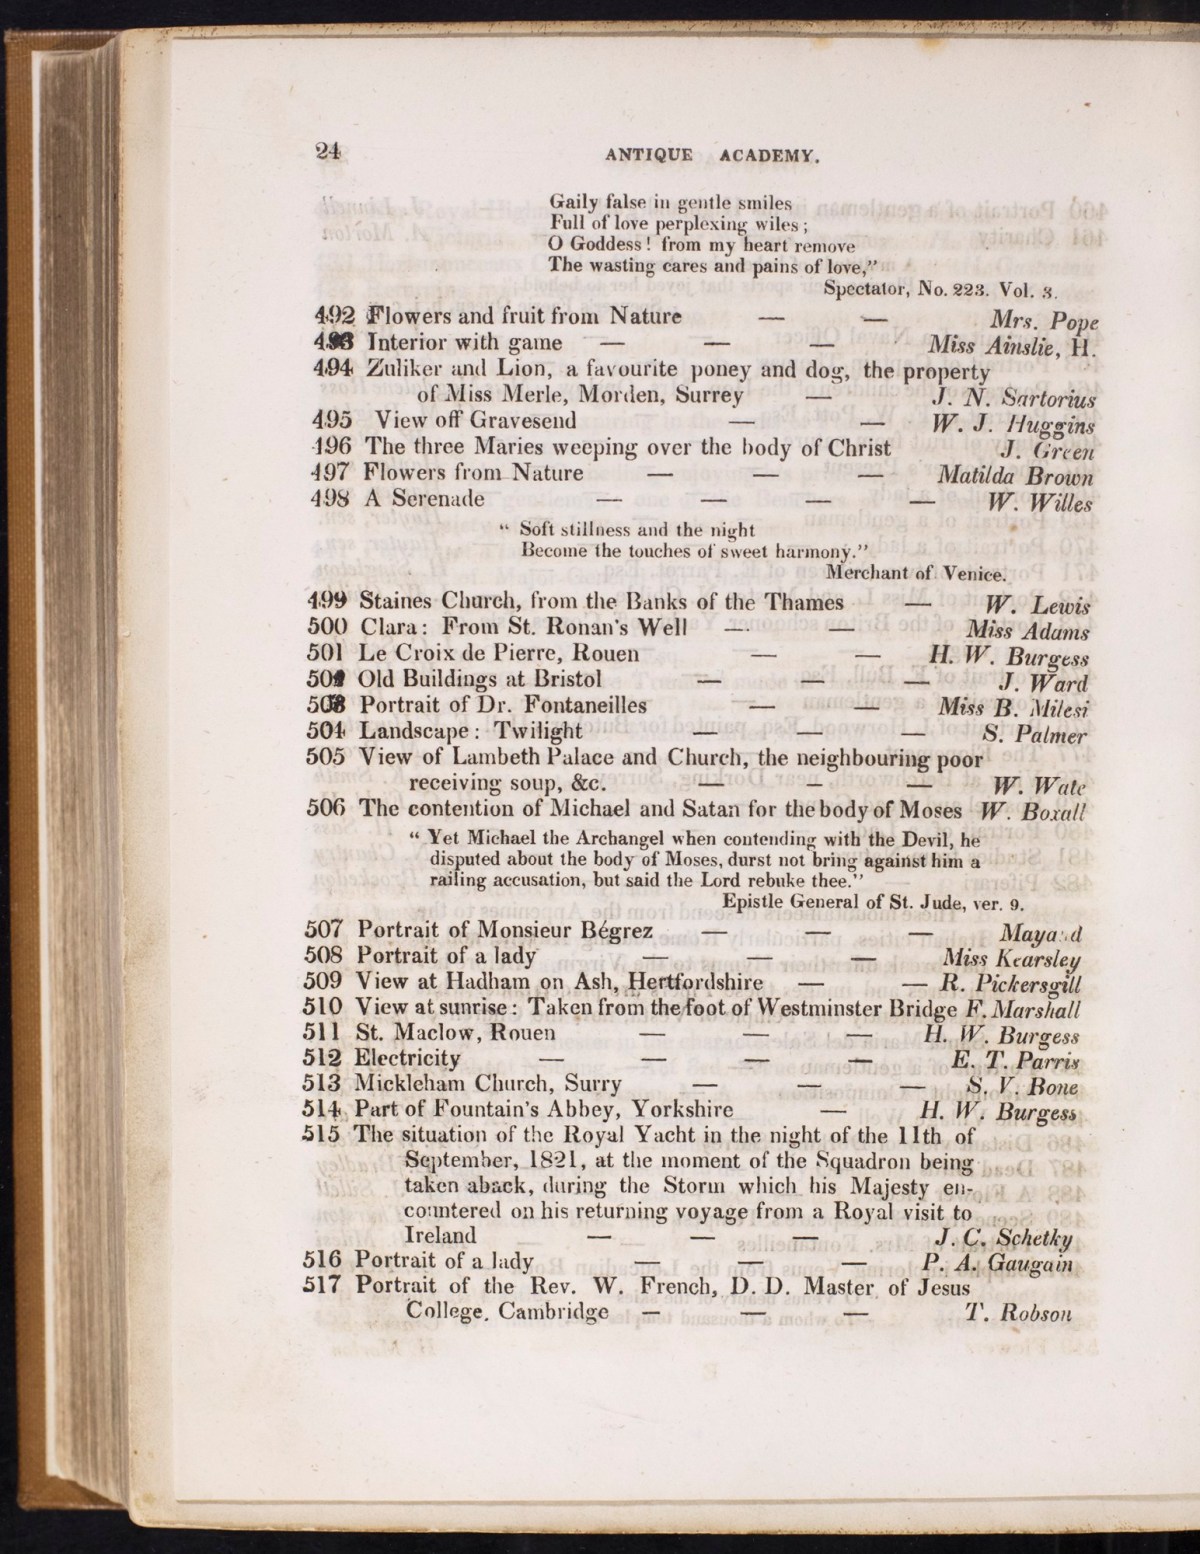 24 ANTIQUE ACADEMY.
Gaily false in gentle smiles
Full of love perplexing wiles;
O Goddess! from my heart remove
The wasting cares and pains of love,"
Spectator, No. 223. Vol. 3.
492 Flowers and fruit from Nature — — Mrs. Pope
493 Interior with game — — — Miss Ainslie, H.
494 Zuliker and Lion, a favourite poney and dog, the property
of Miss Merle, Morden, Surrey — J. N. Sartorius
495 View off Gravesend — — W. J. Huggins
496 The three Maries weeping over the body of Christ J. Green
497 Flowers from Nature — — — Matilda Brown
498 A Serenade — — — — W. Willes
" Soft stillness and the night
Become the touches of sweet harmony."
Merchant of Venice.
499 Staines Church, from the Banks of the Thames — W. Lewis
500 Clara: From St. Ronan's Well — — Miss Adams
501 Le Croix de Pierre, Rouen — — H. W. Burgess
502 Old Buildings at Bristol — — — J. Ward
503 Portrait of Dr. Fontaneilles — — Miss B. Milesi
504 Landscape: Twilight — — — S. Palmer
505 View of Lambeth Palace and Church, the neighbouring poor
receiving soup, &c. — — — W. Wate
506 The contention of Michael and Satan for the body of Moses W. Boxall
" Yet Michael the Archangel when contending with the Devil, he
disputed about the body of Moses, durst not bring against him a
railing accusation, but said the Lord rebuke thee."
Epistle General of St. Jude, ver. 9.
507 Portrait of Monsieur Bégrez — — — Maya d
508 Portrait of a lady — — — Miss Kearsley
509 View at Hadham on Ash, Hertfordshire — — R. Pickersgill
510 View at sunrise: Taken from the foot of Westminster Bridge F. Marshall
511 St. Maclow, Rouen — — — H. W. Burgess
512 Electricity — — — — E. T. Parris
513 Mickleham Church, Surry — — — S. V. Bone
514 Part of Fountain's Abbey, Yorkshire — H. W. Burgess
515 The situation of the Royal Yacht in the night of the 11th of
September, 1821, at the moment of the Squadron being
taken aback, during the Storm which his Majesty en-
countered on his returning voyage from a Royal visit to
Ireland — — — J. C. Schetky
516 Portrait of a lady — — — P. A. Gaugain
517 Portrait of the Rev. W. French, D. D. Master of Jesus
College, Cambridge — — — T. Robson